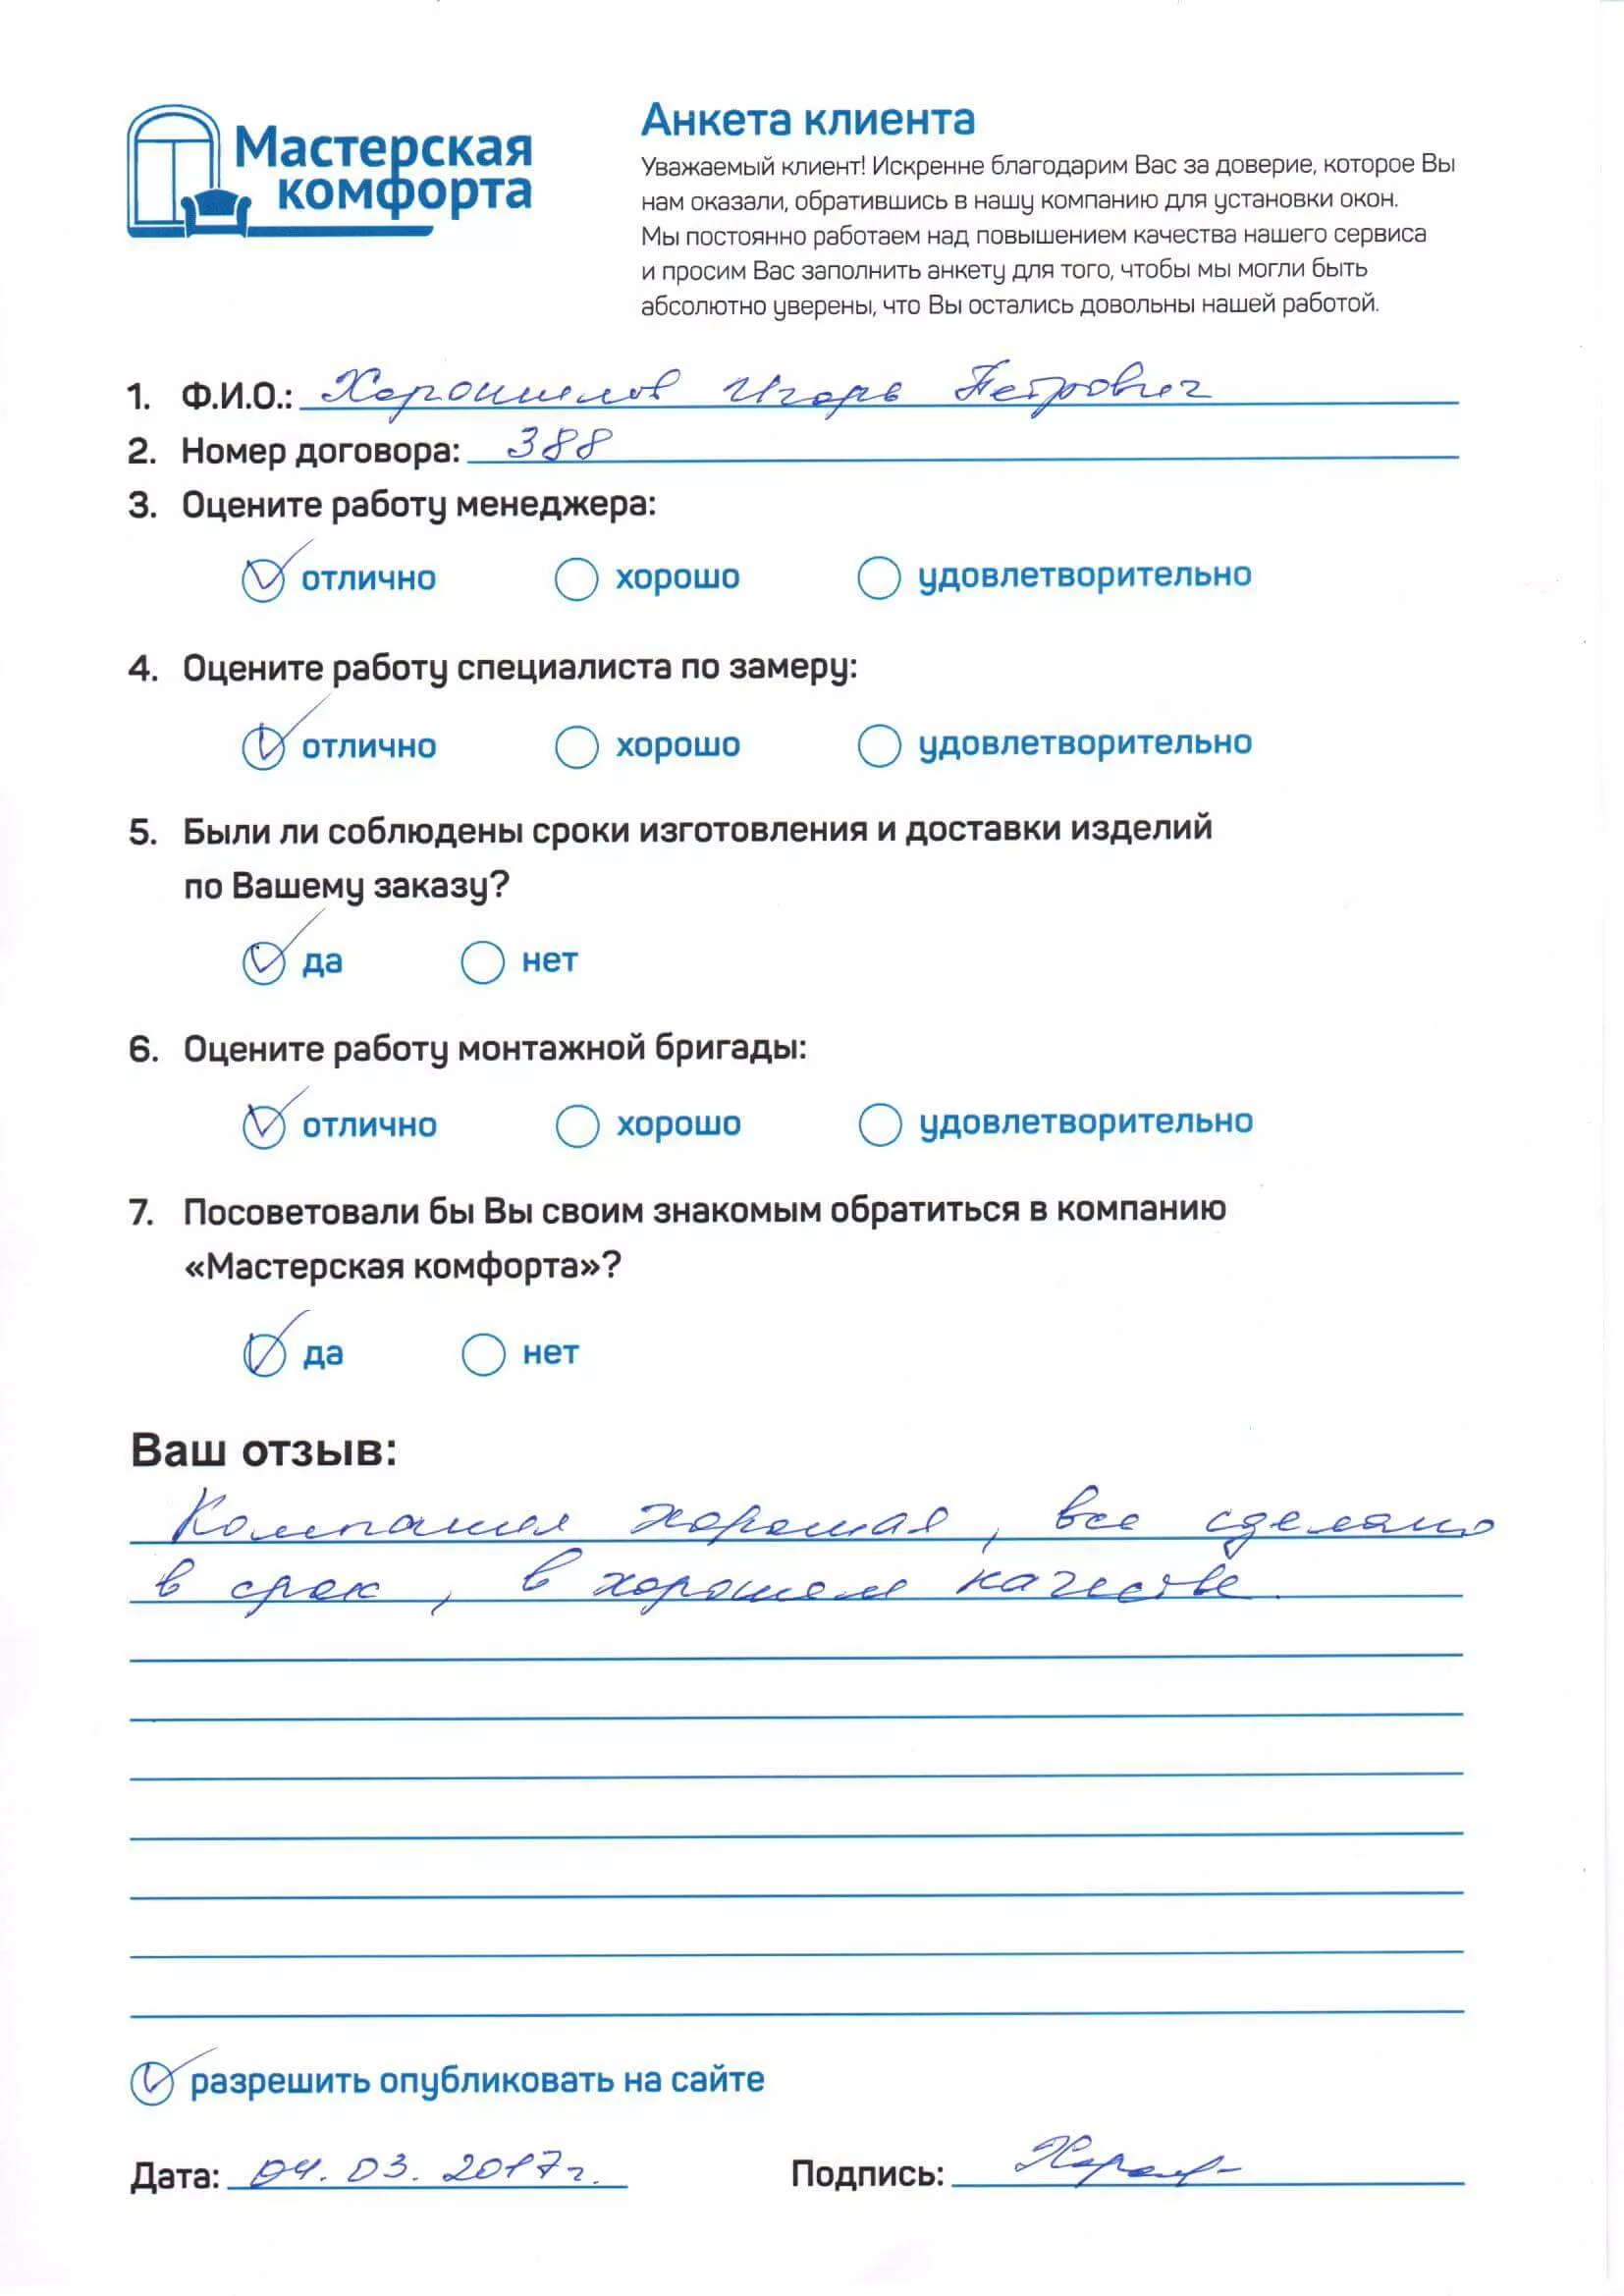 Мастерская
комфорта
Анкета клиента
Уважаемый клиент! Искренне благодарим Вас за доверие, которое Вы
нам оказали, обратившись в нашу компанию для установки окон.
Мы постоянно работаем над повышением качества нашего сервиса
и просим Вас заполнить анкету для того, чтобы мы могли быть
абсолютно уверены, что Вы остались довольны нашей работой.
1. Ф.И.О.: Хорошилов Игорь Петрович
2. Номер договора: 388
3. Оцените работу менеджера:
отлично хорошо удовлетворительно
4. Оцените работу специалиста по замеру:
отлично хорошо удовлетворительно
5. Были ли соблюдены сроки изготовления и доставки изделий
по Вашему заказу?
да нет
6. Оцените работу монтажной бригады:
отлично хорошо удовлетворительно
7. Посоветовали бы Вы своим знакомым обратиться в компанию
«Мастерская комфорта»?
да нет
Ваш отзыв:
Компания хорошая, все сделано
в срок, в хорошем качестве.
разрешить опубликовать на сайте
Дата: 04.03.2017г. Подпись: